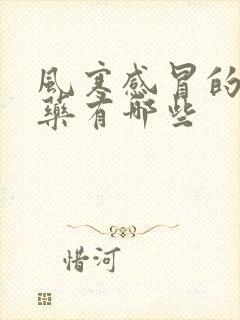 風寒感冒的
藥有哪些
惜河